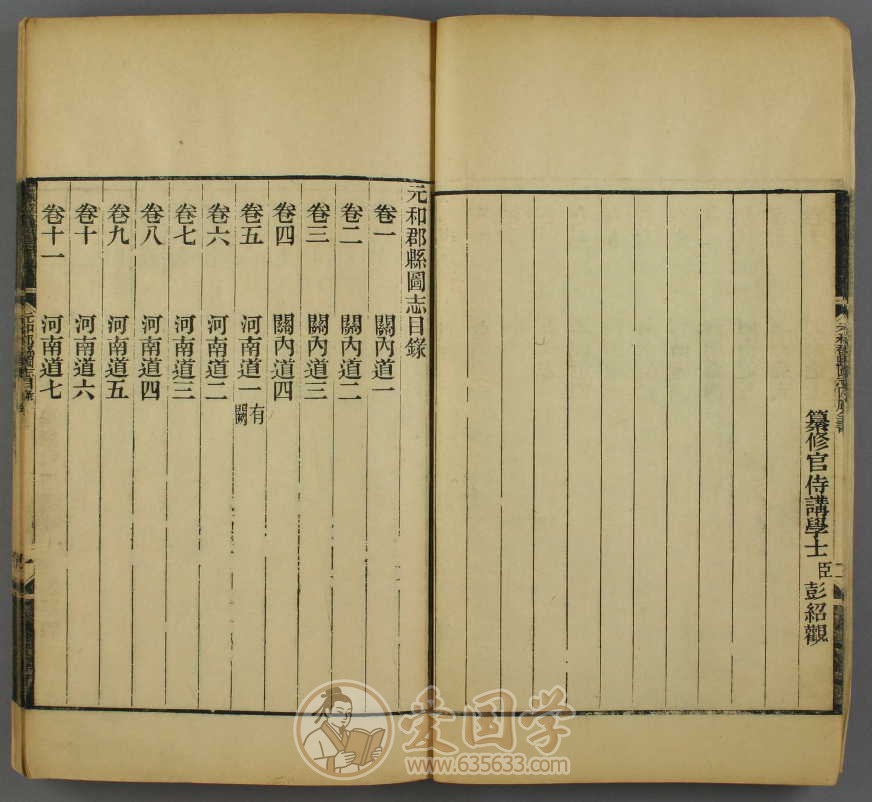 纂修官侍講學士臣彭紹觀
元和郡縣圖志目錄
卷一 關內道一
卷二 關內道二
卷三 關內道三
卷四 關內道四
卷五 河南道一有闕
卷六 河南道二
卷七 河南道三
卷八 河南道四
卷九 河南道五
卷十 河南道六
卷十一 河南道七
元和郡縣圖志目錄
爱国学
www.635633.com